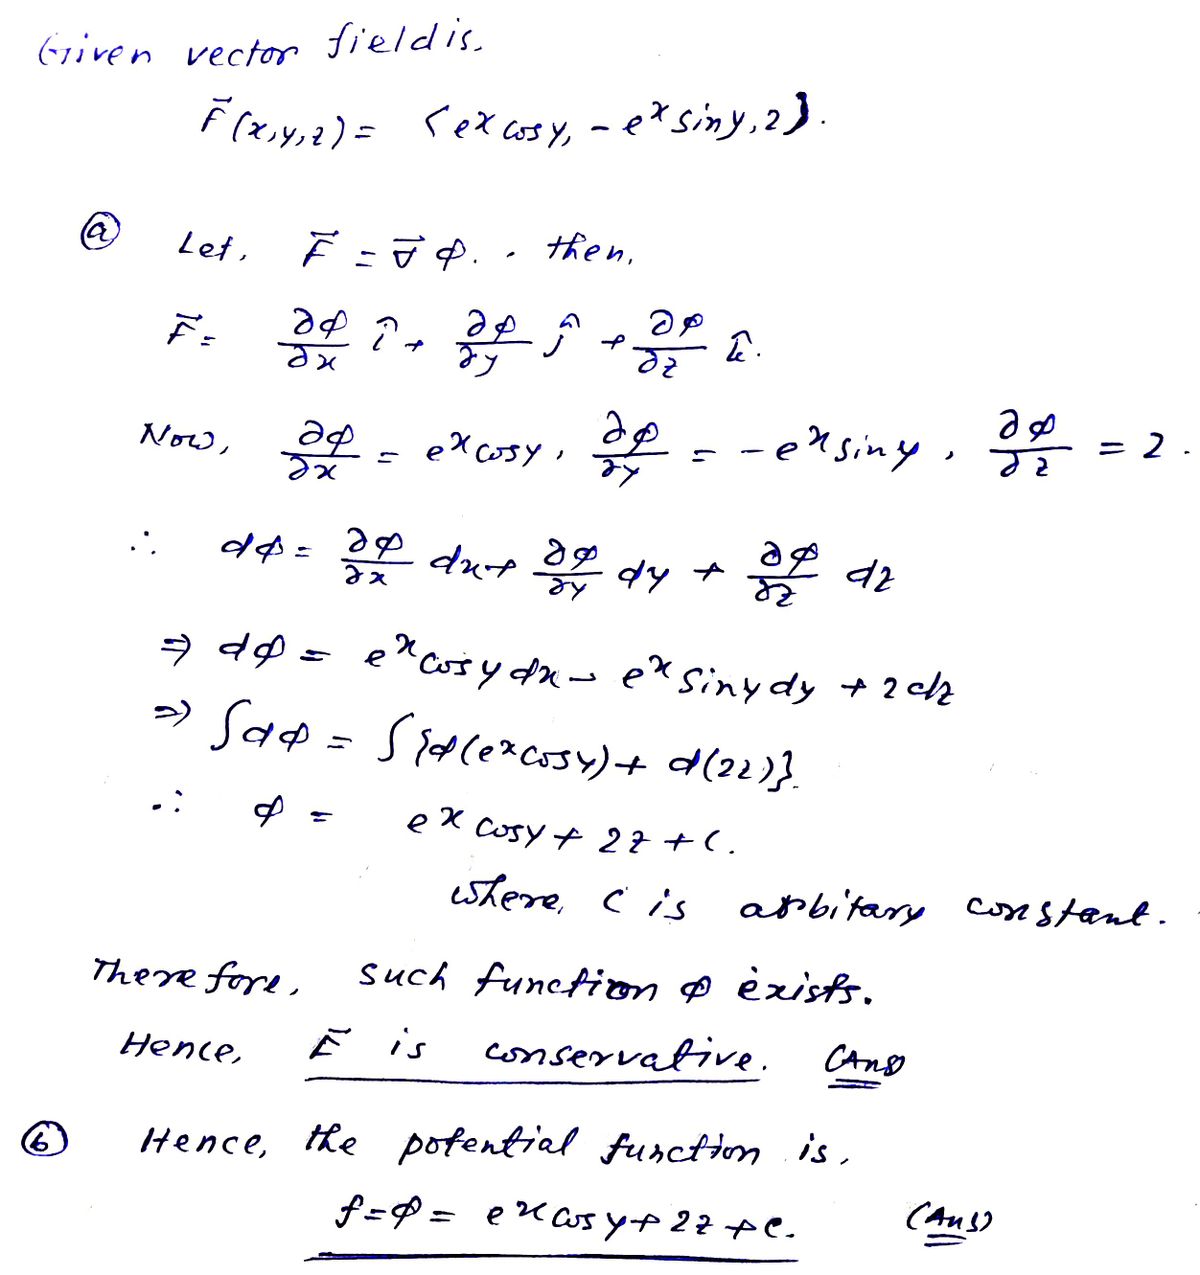 Given vector field is.
F⃗(x,y,z) = ⟨e^x cos y, -e^x sin y, 2}.
ⓐ Let, F⃗ = ∇⃗ϕ. . then,
F⃗ = ∂ϕ/∂x î + ∂ϕ/∂y ĵ + ∂ϕ/∂z k̂.
Now, ∂ϕ/∂x = e^x cos y, ∂ϕ/∂y = -e^x sin y, ∂ϕ/∂z = 2.
∴ dϕ = ∂ϕ/∂x dx + ∂ϕ/∂y dy + ∂ϕ/∂z dz
⇒ dϕ = e^x cos y dx - e^x sin y dy + 2 dz
⇒ ∫dϕ = ∫{d(e^x cos y) + d(2z)}.
∴ ϕ = e^x cos y + 2z + C.
where, C is arbitary constant.
Therefore, such function ϕ exists.
Hence, F⃗ is conservative. (Ans)
ⓑ Hence, the potential function is,
f = ϕ = e^x cos y + 2z + c. (Ans)